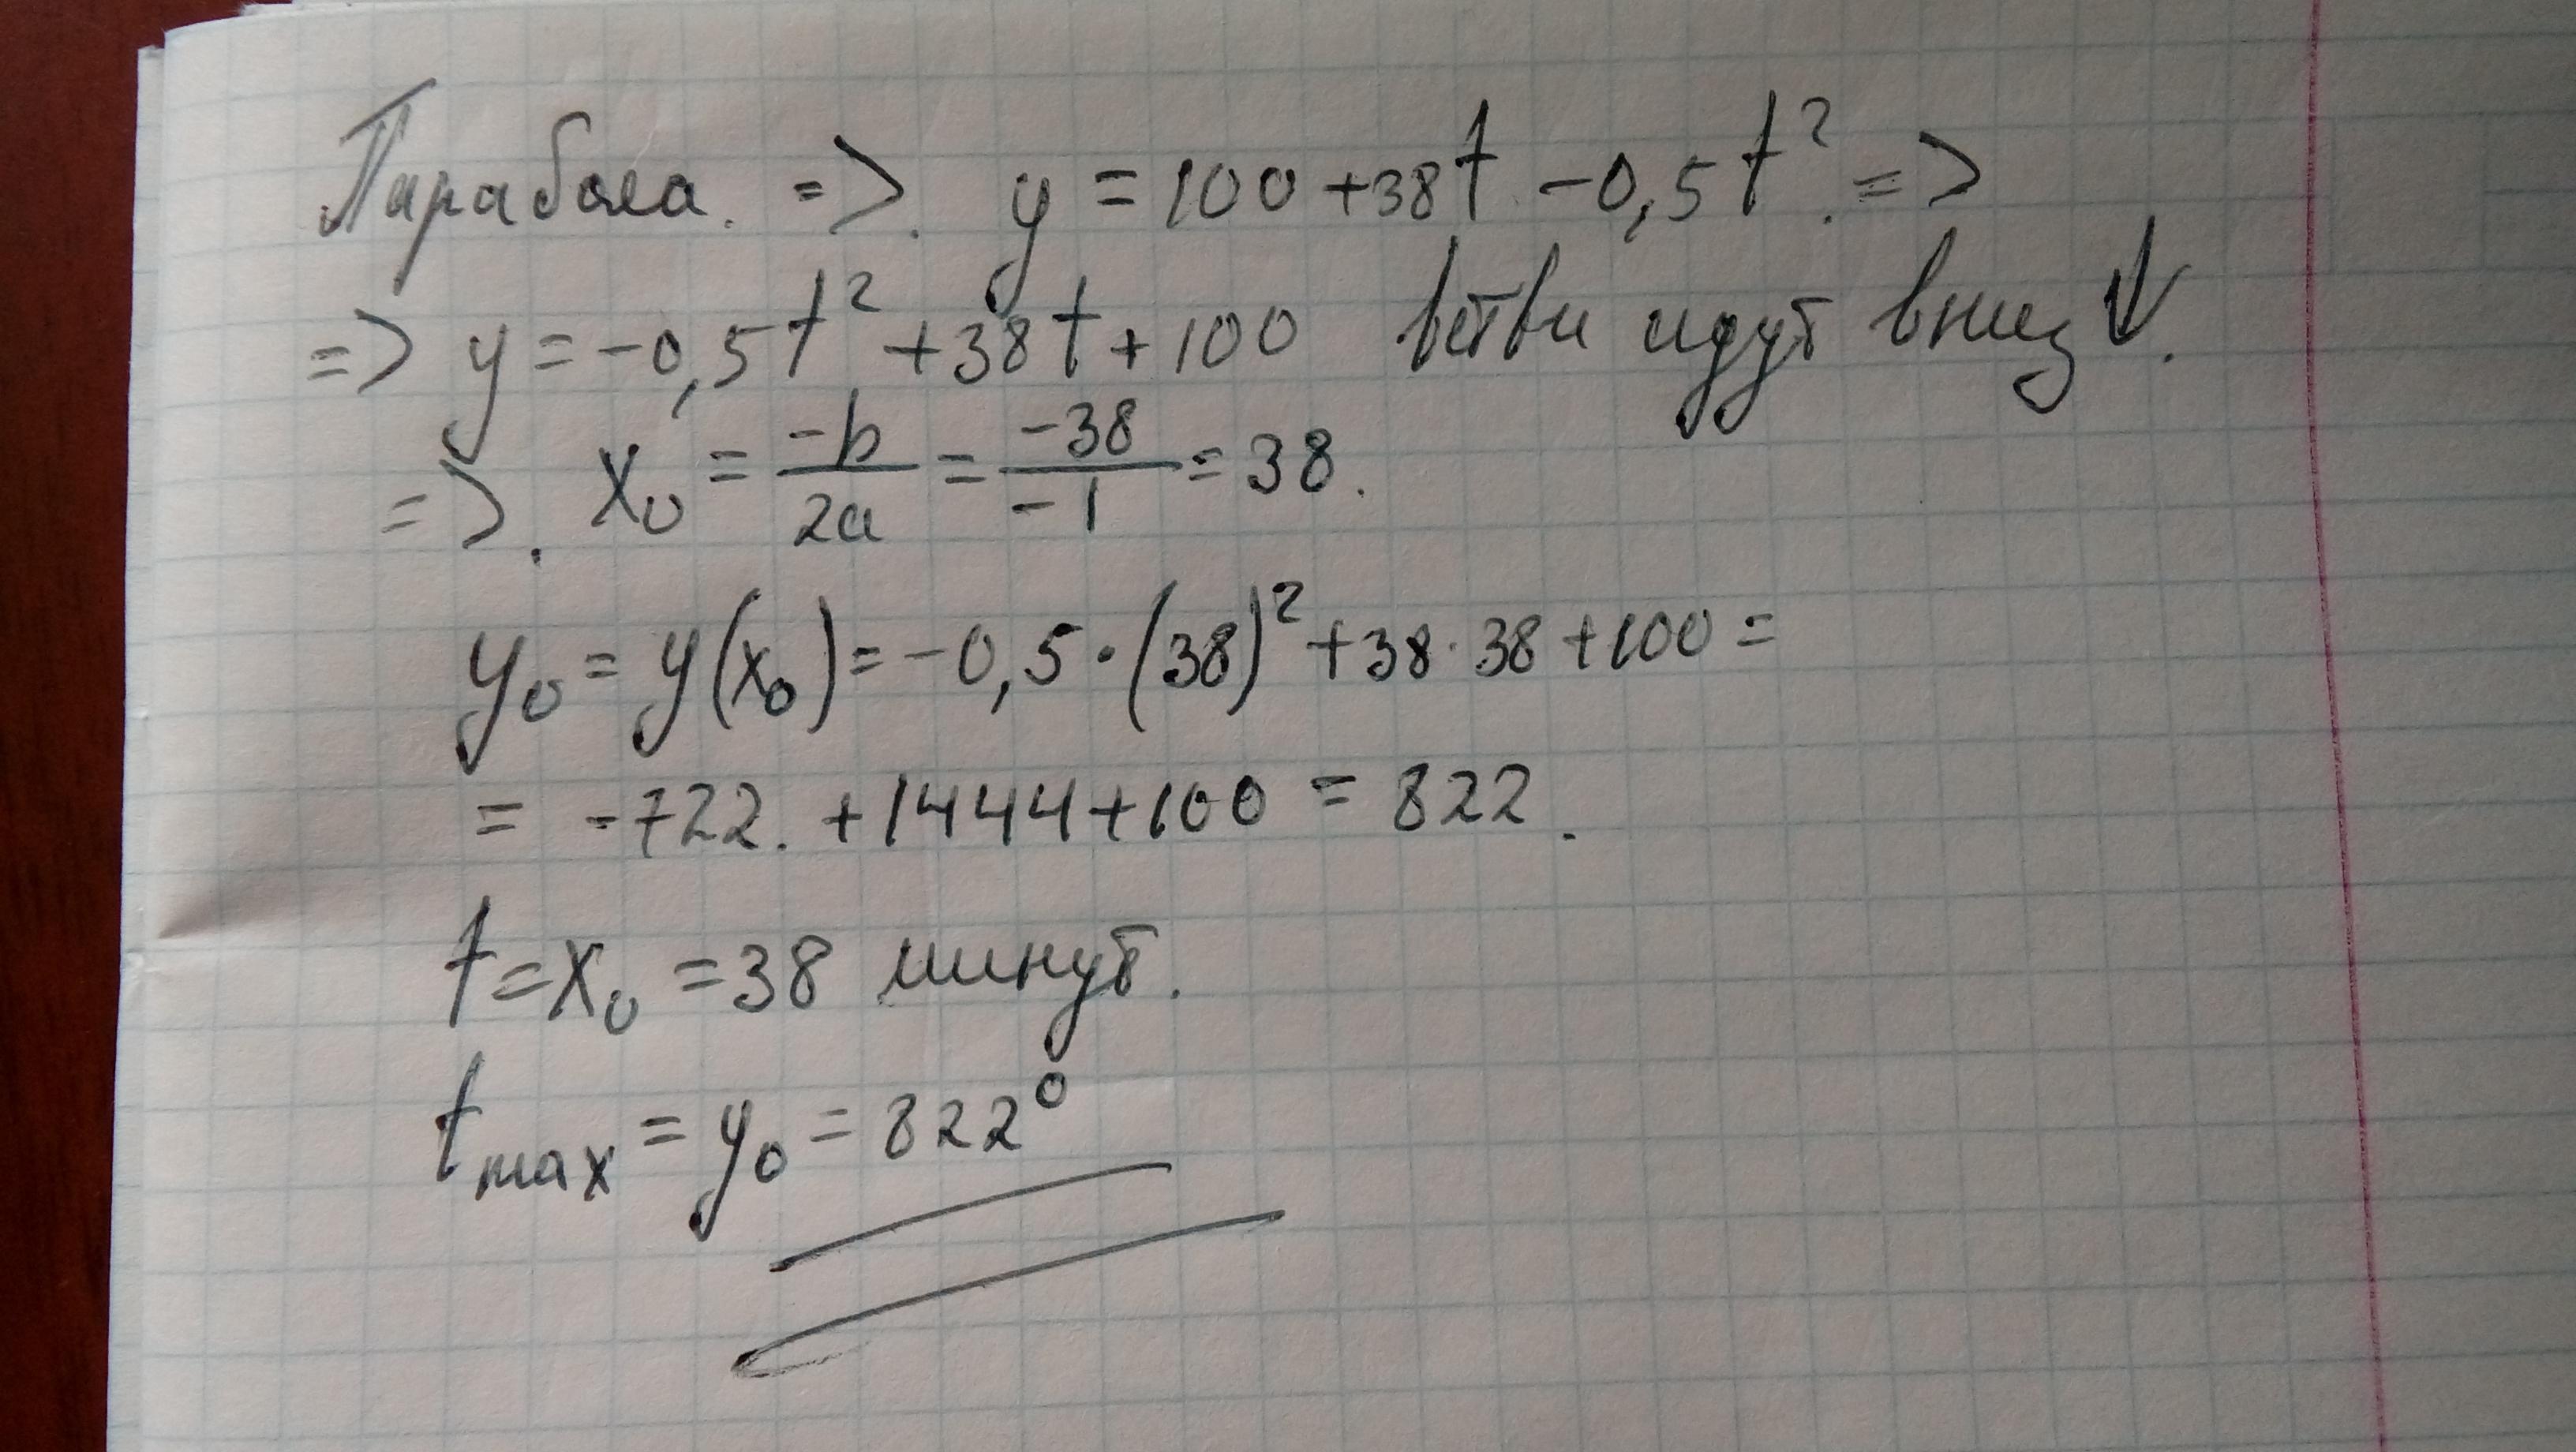 Парабола. => . y = 100 + 38t - 0,5t². =>
=> y = -0,5t² + 38t + 100 ветви идут вниз ↓.
=> . x₀ = -b/2a = -38/-1 = 38.
y₀ = y(x₀) = -0,5 · (38)² + 38 · 38 + 100 =
= -722. + 1444 + 100 = 822.
t = x₀ = 38 минут.
t max = y₀ = 822°